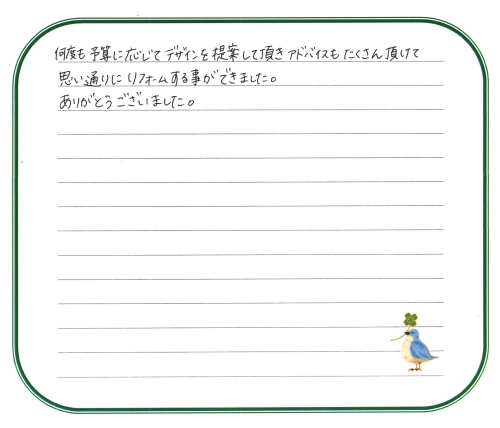 何度も予算に応じてデザインを提案して頂きアドバイスもたくさん頂けて
思い通りにリフォームする事ができました。
ありがとうございました。